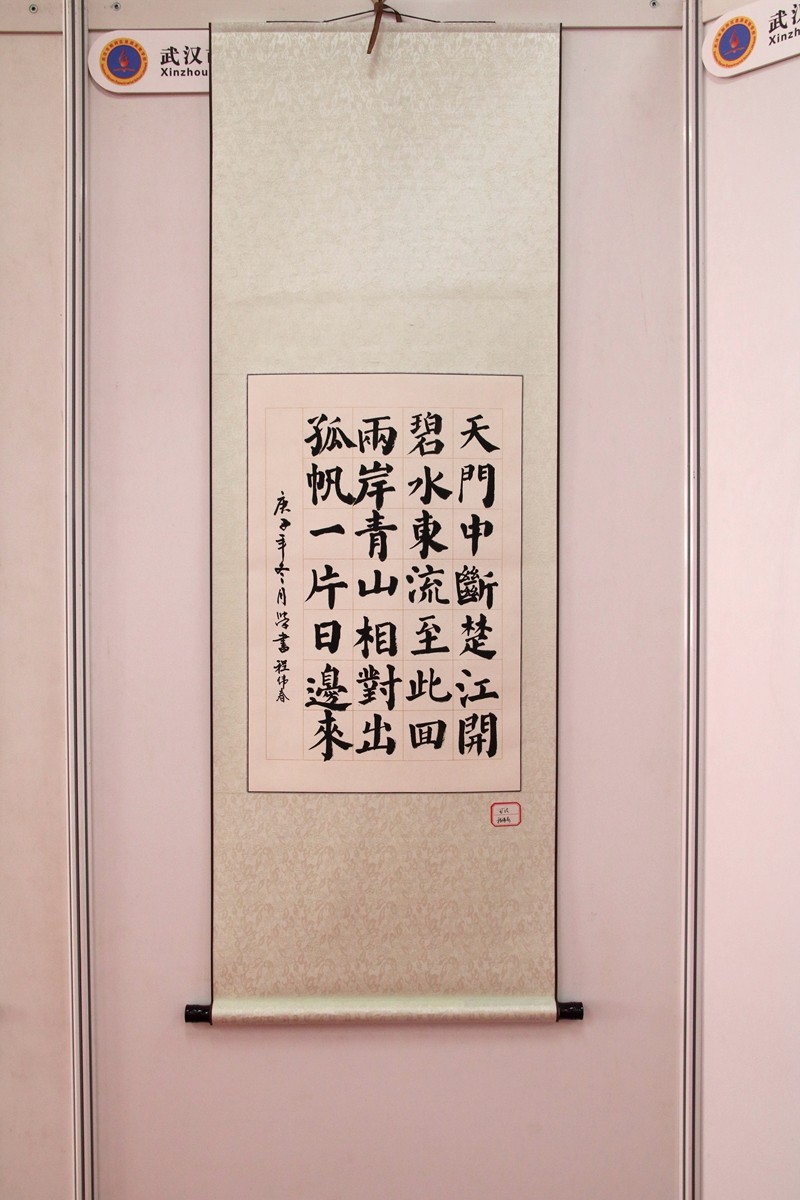 武汉
Xinzhou
武
Xinzh
天門中斷楚江開
碧水東流至此回
兩岸青山相對出
孤帆一片日邊來
庚子年冬月學書程伟春